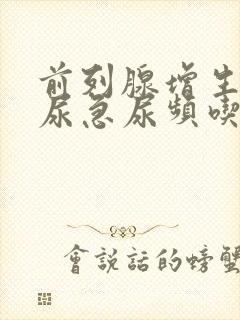 前列腺增生
尿急尿頻喫
會說話的螃蟹